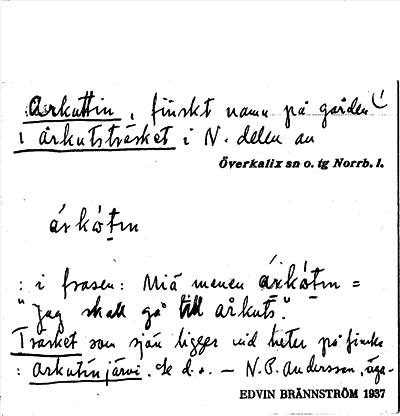 Arkuttin, finskt namn på gården
i årkutsträsket i N. delen av
Överkalix sn o. tg Norrb. l.
árkọ́tın
: i frasen: Miä menen árkọ́tın =
"jag skall gå till årkuts".
Träsket som sjön ligger vid heter på finska
: arkutinjärvi. Se d. o. — N. P. Andersson, äga-
EDVIN BRÄNNSTRÖM 1937